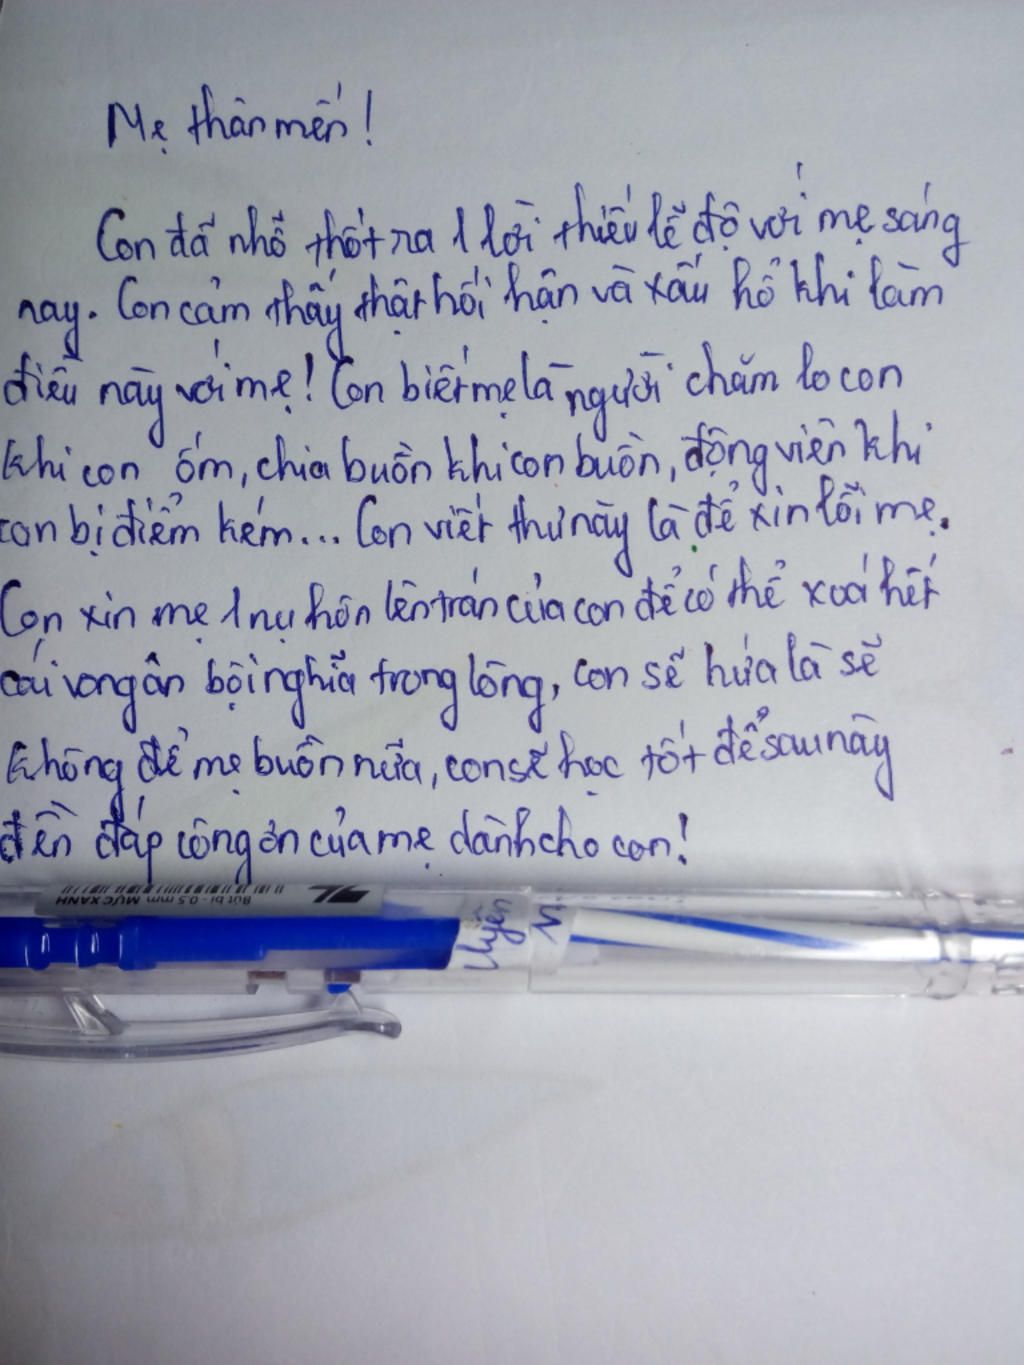 Mẹ thân mến!
Con đã nhỡ thốt ra 1 lời thiếu lễ độ với mẹ sáng
nay. Con cảm thấy thật hối hận và xấu hổ khi làm
điều này với mẹ! Con biết mẹ là người chăm lo con
khi con ốm, chia buồn khi con buồn, động viên khi
con bị điểm kém... Con viết thư này là để xin lỗi mẹ.
Con xin mẹ 1 nụ hôn lên trán của con để có thể xoá hết
cái vong ân bội nghĩa trong lòng, con sẽ hứa là sẽ
không để mẹ buồn nữa, con sẽ học tốt để sau này
đền đáp công ơn của mẹ dành cho con!
TL
Bút bi - 0.5 mm MỰC XANH
Uyên